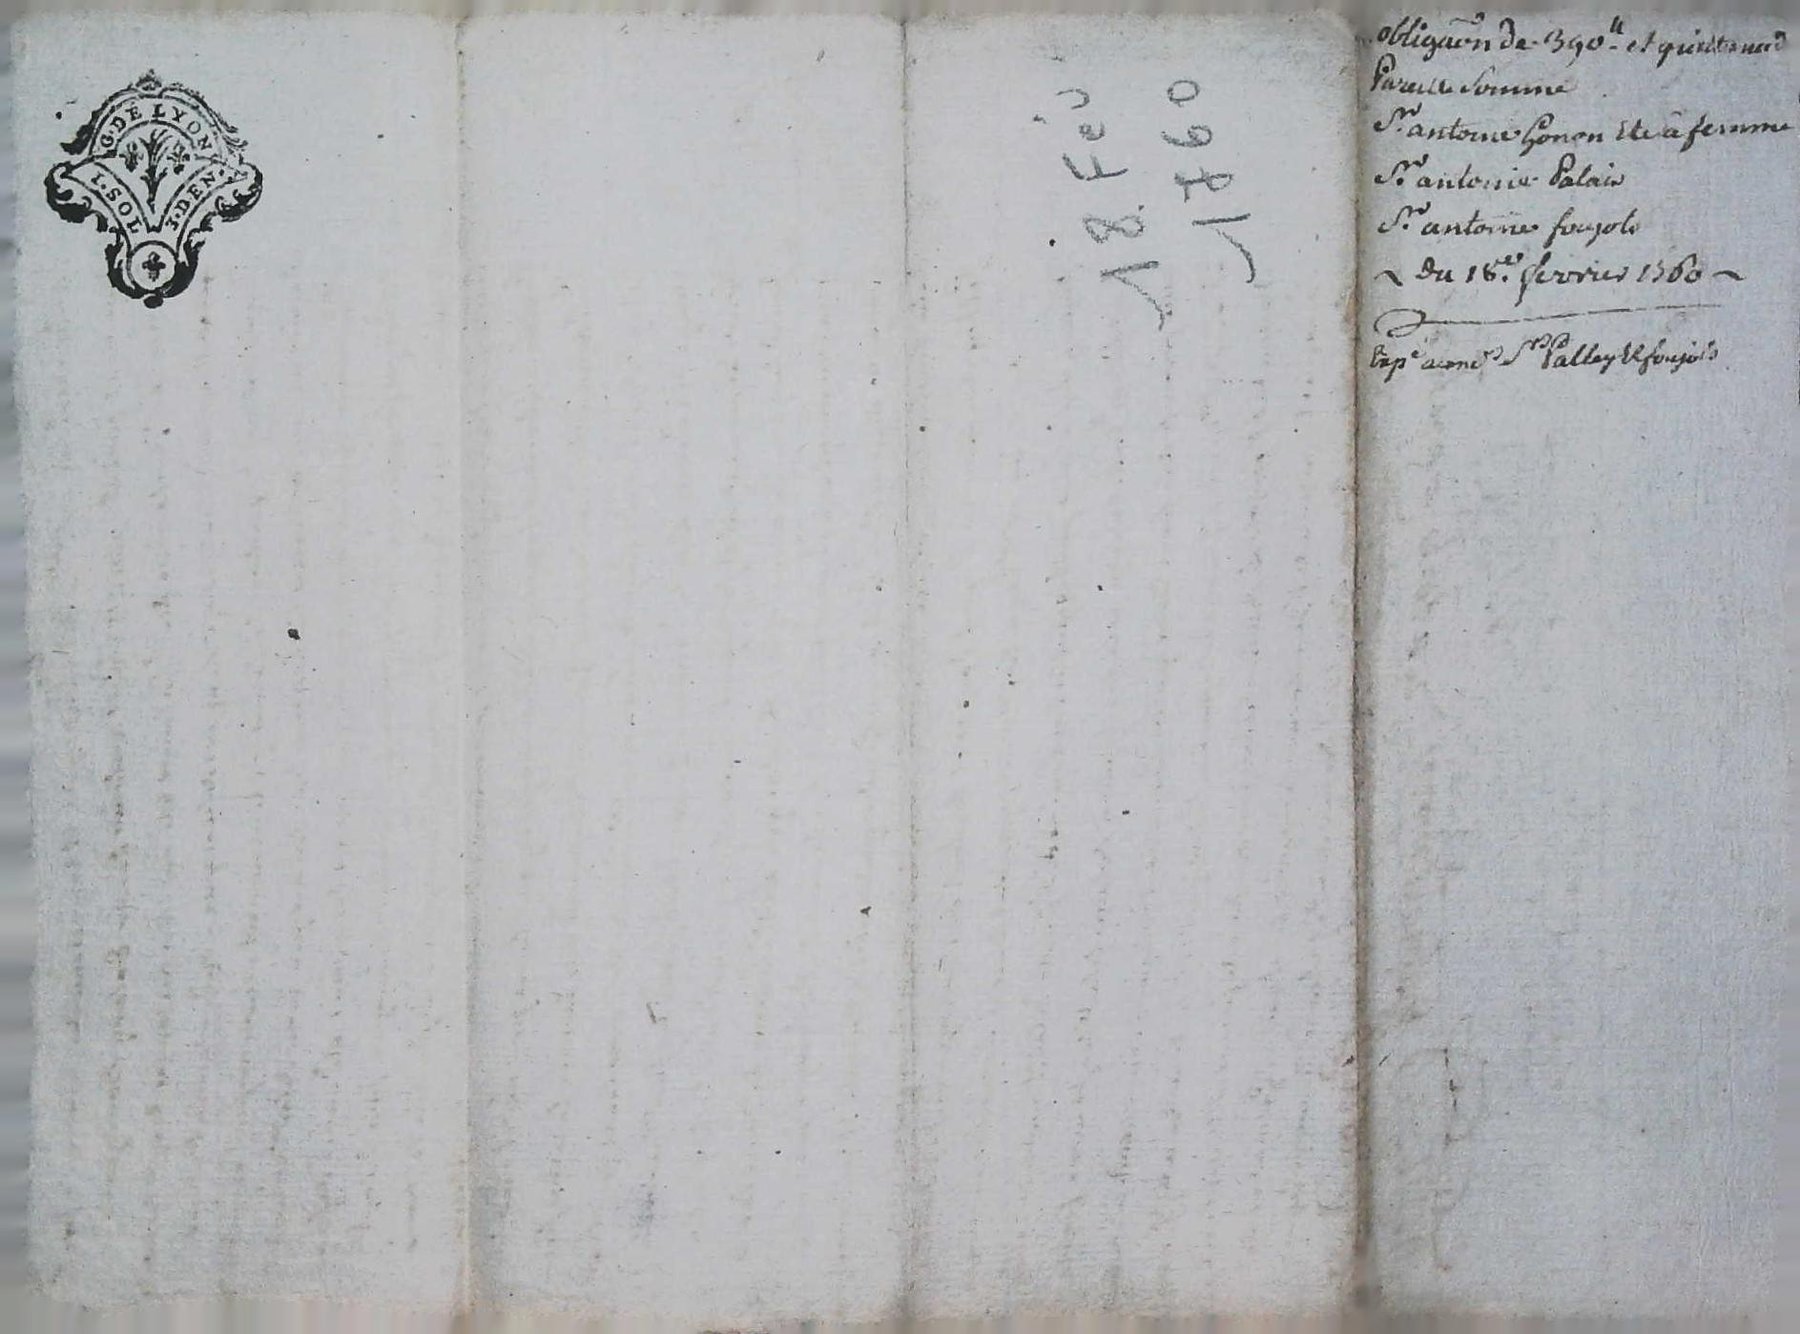 G. DE LYON
1. SOL
3. DEN.
18 Fév
1760
obligaôn de 390ᵗᵗ et quittance d
Pareille Somme
Sʳ antoine Gonon Et sa femme
Sʳ antoine Palais
Sʳ antoine foujols
~ du 18ᵉ fevrier 1760 ~
Expᵉ Sʳˢ Palley Et foujols